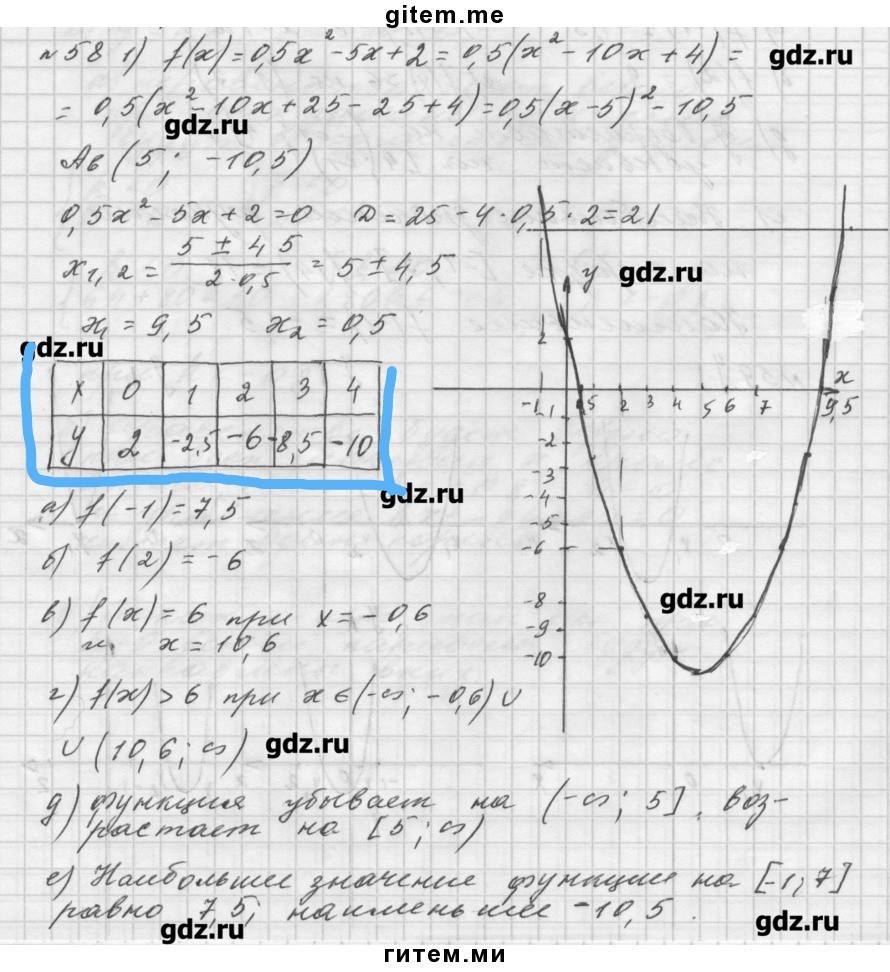 gitem.me
№58 1) f(x) = 0,5x² - 5x + 2 = 0,5(x² - 10x + 4) =
gdz.ru
= 0,5(x² - 10x + 25 - 25 + 4) = 0,5(x - 5)² - 10,5
gdz.ru
Ав (5; -10,5)
0,5x² - 5x + 2 = 0 D = 25 - 4 · 0,5 · 2 = 21
x₁,₂ = (5 ± 4,5)/(2·0,5) = 5 ± 4,5
x₁ = 9,5 x₂ = 0,5
gdz.ru
x 0 1 2 3 4
y 2 -2,5 -6 -8,5 -10
gdz.ru
а) f(-1) = 7,5
б) f(2) = -6
в) f(x) = 6 при x = -0,6
и x = 10,6
г) f(x) > 6 при x ∈ (-∞; -0,6) ∪
∪ (10,6; ∞)
gdz.ru
д) функция убывает на (-∞; 5], воз-
растает на [5; ∞)
е) Наибольшее значение функции на [-1; 7]
равно 7,5, наименьшее -10,5.
gdz.ru
gdz.ru
y
gdz.ru
2
x
-1 1 5 2 3 4 5 6 7 9,5
-1
-2
-3
-4
-5
-6
-8
-9
-10
gdz.ru
гитем.ми